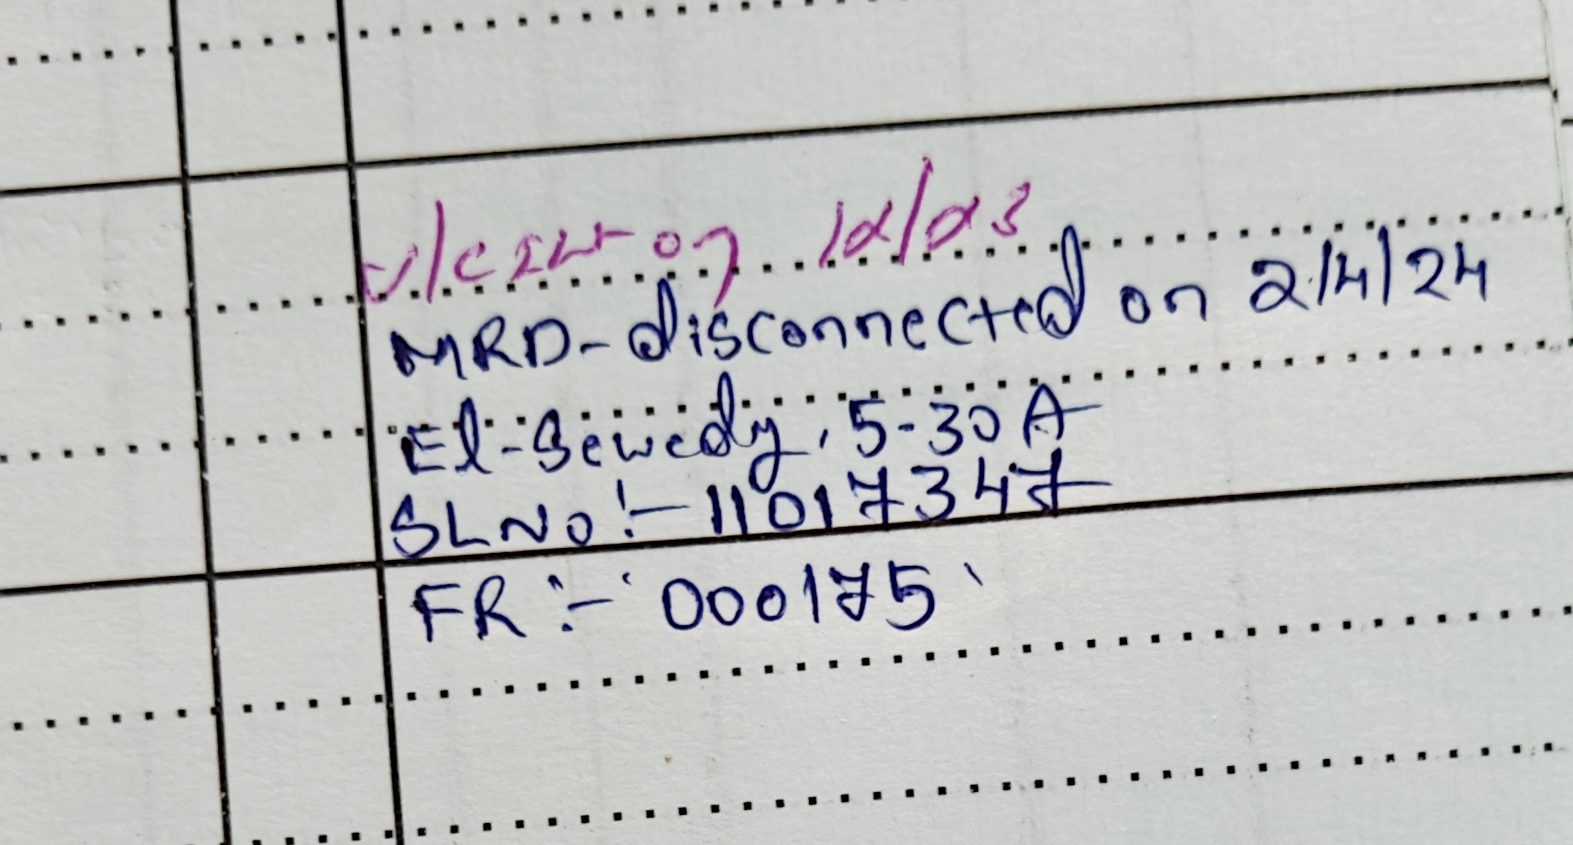 on
MRD-disconnected on 2/4/24
El-Sewedy, 5-30A
SLNO:- 11017347
FR:- '000175'